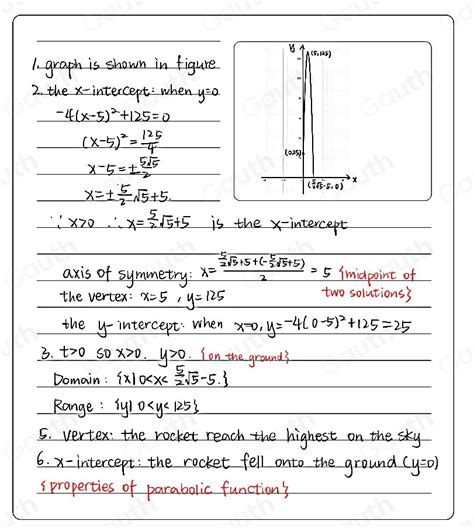 1. graph is shown in figure
2. the x-intercept: when y=0
-4(x-5)²+125=0
(x-5)²=125/4
x-5=±5√5/2
x=±5/2√5+5.
∵ x>0 ∴ x=5/2√5+5 is the x-intercept
y
(5,125)
(0,25)
x
(5/2√5-5,0)
axis of symmetry: x=(5/2√5+5+(-5/2√5+5))/2 = 5 {midpoint of two solutions}
the vertex: x=5, y=125
the y-intercept: when x=0, y=-4(0-5)²+125=25
3. t>0 so x>0. y>0. {on the ground}
Domain: {x|0<x<5/2√5-5.}
Range: {y|0<y<125}
5. vertex: the rocket reach the highest on the sky
6. x-intercept: the rocket fell onto the ground (y=0)
{properties of parabolic function}
Gauth